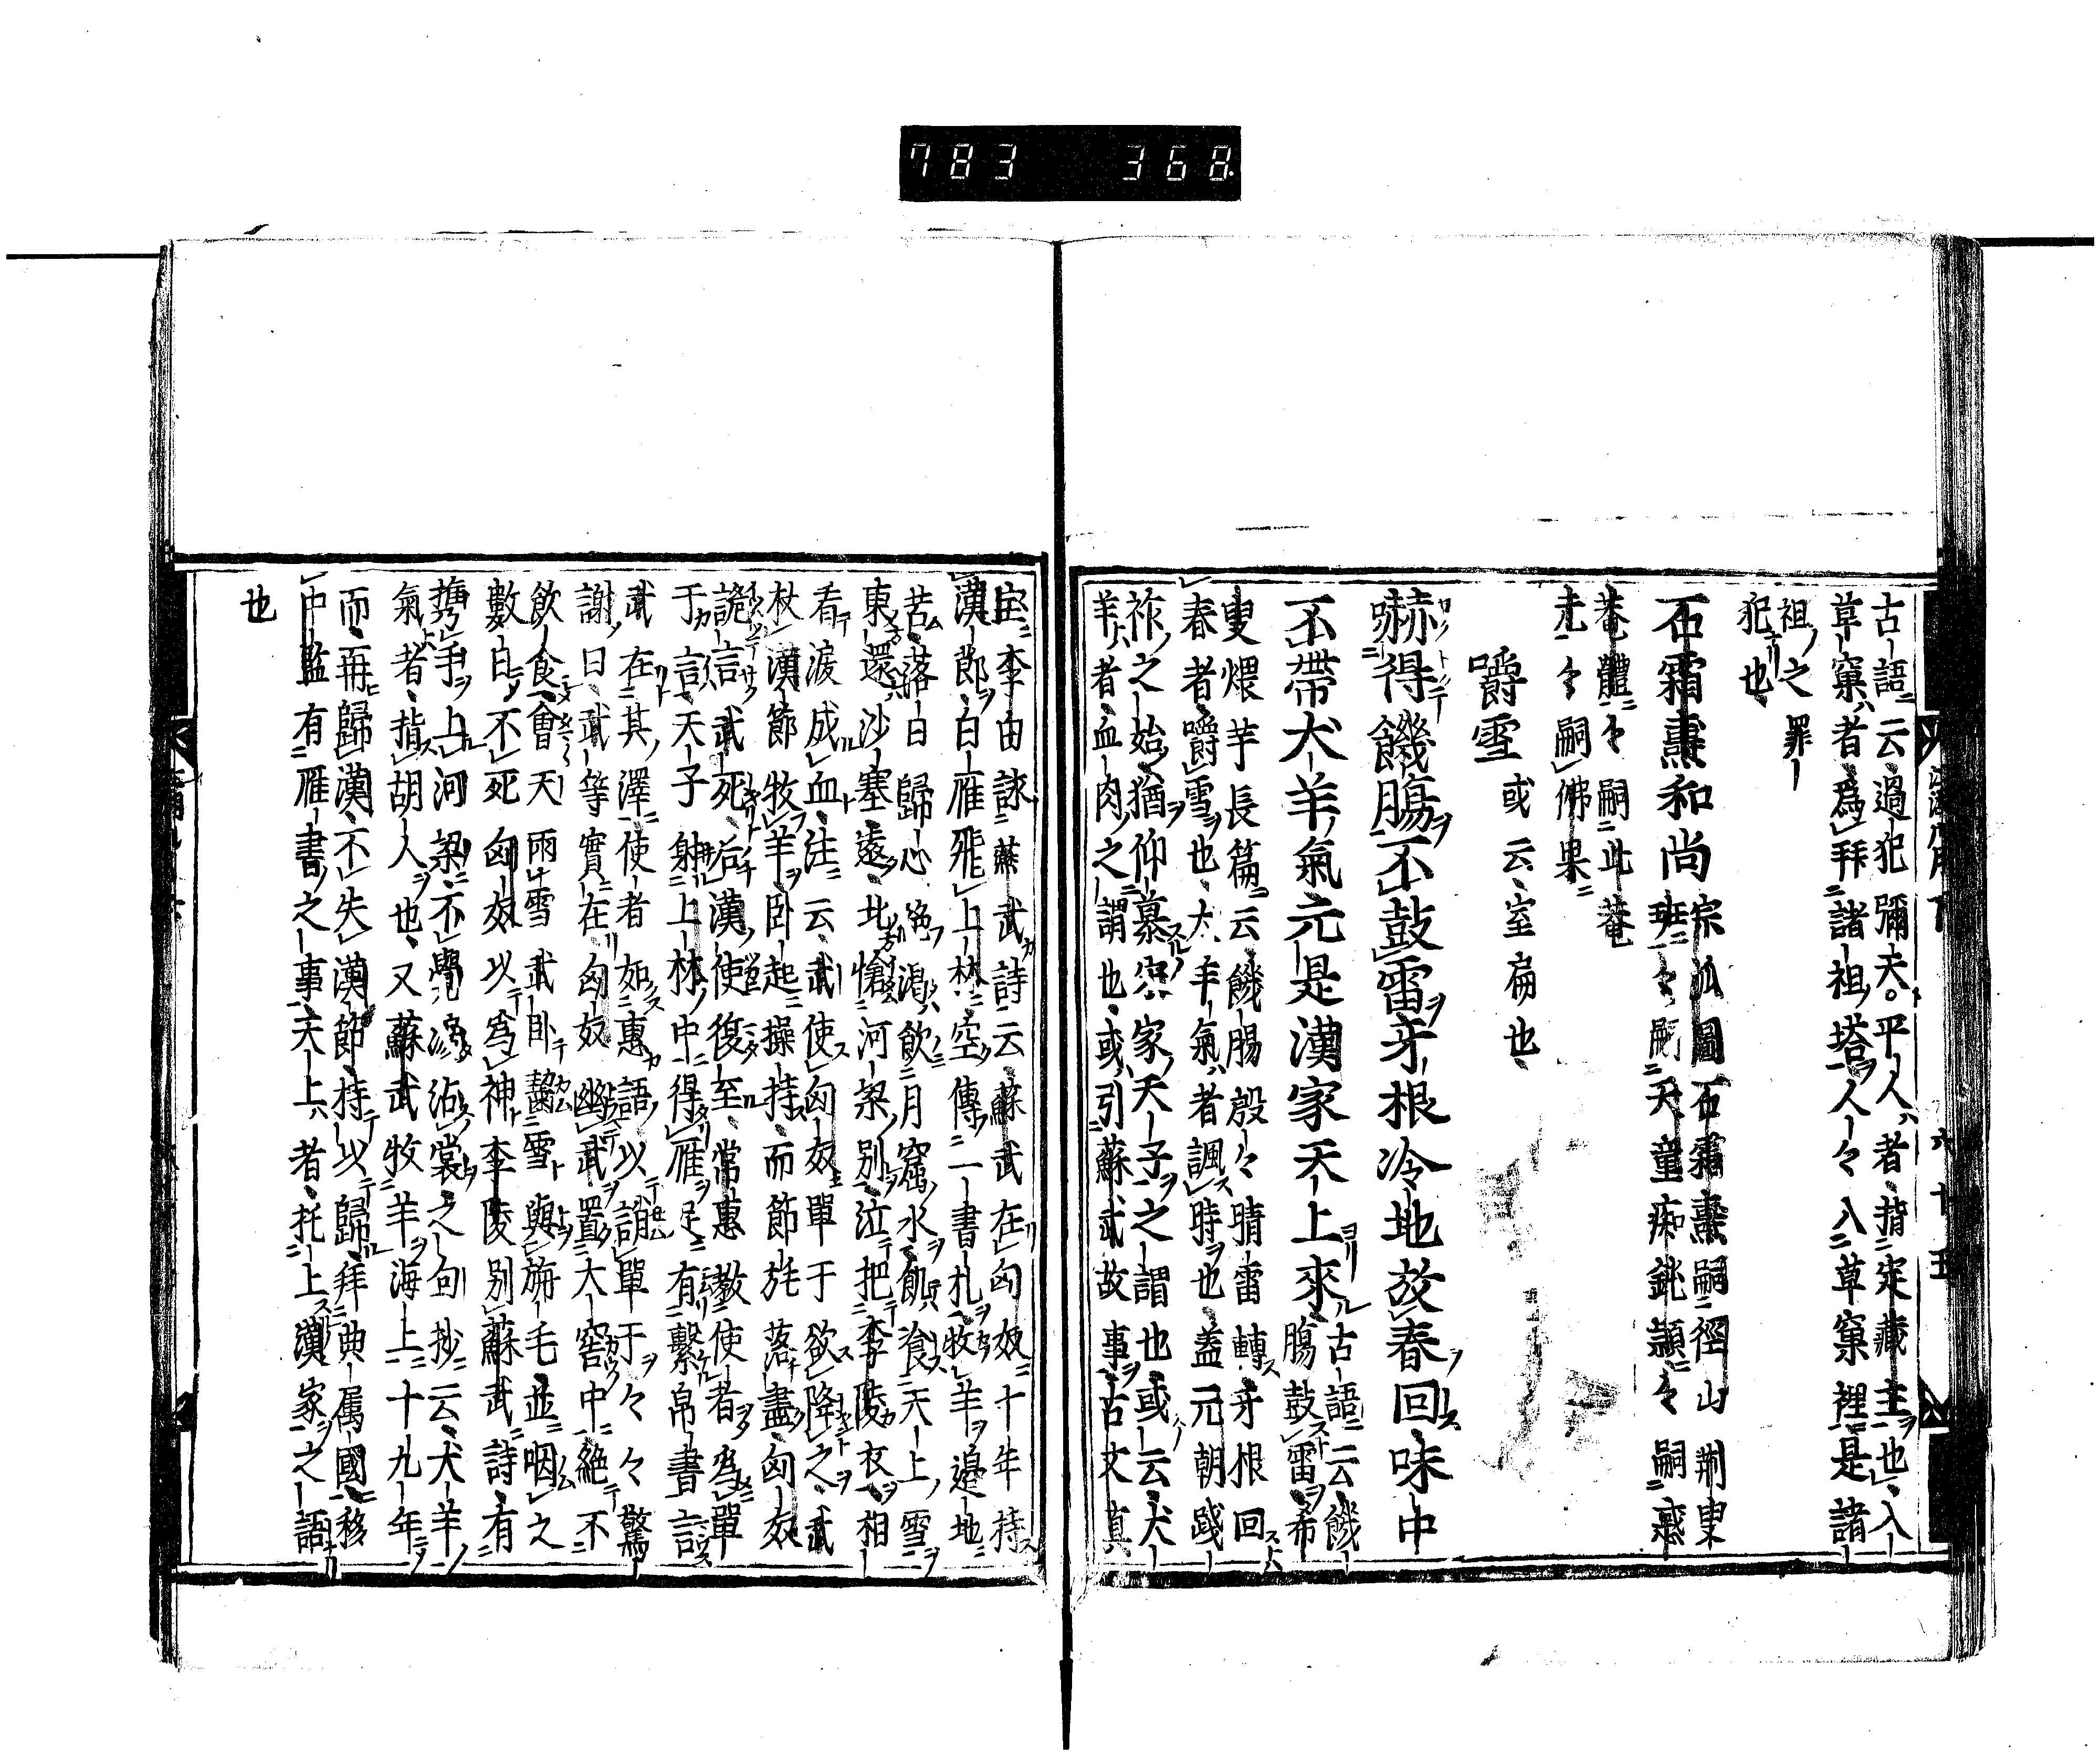 783 368
古語云過犯彌天。平人者、指宋藏主也、入
草窠者、為拜諸祖塔人々入草窠裡是諸
祖之罪
犯也
石霜薰和尚 宗派圖石霜薰嗣徑山荆叟
班々嗣天童痴鈍頴々嗣密
菴體々嗣此菴
元々嗣佛果
嚼雪 或云、室扁也、
嚇得饑膓不鼓雷牙根冷地放春回味中
不帶犬羊氣元是漢家天上來 古語云饑
膓鼓雷希
叟煨芋長篇云饑腸殷々晴雷轉牙根回
春者、嚼雪也、犬羊氣者諷時也、盖元朝踐
祚之始猶仰慕宋家天子之謂也或云犬
羊者、血肉之謂也、或引蘇武故事古文真
宝李白詠蘇武詩云、蘇武在匈奴十年持
漢節、白雁飛上林空傳一書札牧羊邊地
苦、落日歸心絶渴飲月窟水飢飡天上雪
東還沙塞遠、北愴河梁別泣把李陵衣相
看淚成血、注云、武使匈奴單于欲降之、武
杖漢節牧羊卧起操持、而節旄落盡、匈奴
詭言武死、后漢使復至、常惠教使者為單
于言、天子射上林中得雁足有繫帛書言
武在其澤使者如惠語以誚單于々々驚
謝曰、武等實在匈奴幽武置大窖中絶不
飲食會天雨雪武卧齧雪與旃毛並咽之
數日不死匈奴以為神李陵別蘇武詩、有
携手上河梁不覺淚沾裳之句抄云、犬羊
氣者、指胡人也、又蘇武牧羊海上十九年
而、再歸漢、不失漢節、持以歸拜典属國、移
中監有雁書之事、天上者、托上漢家之語
也